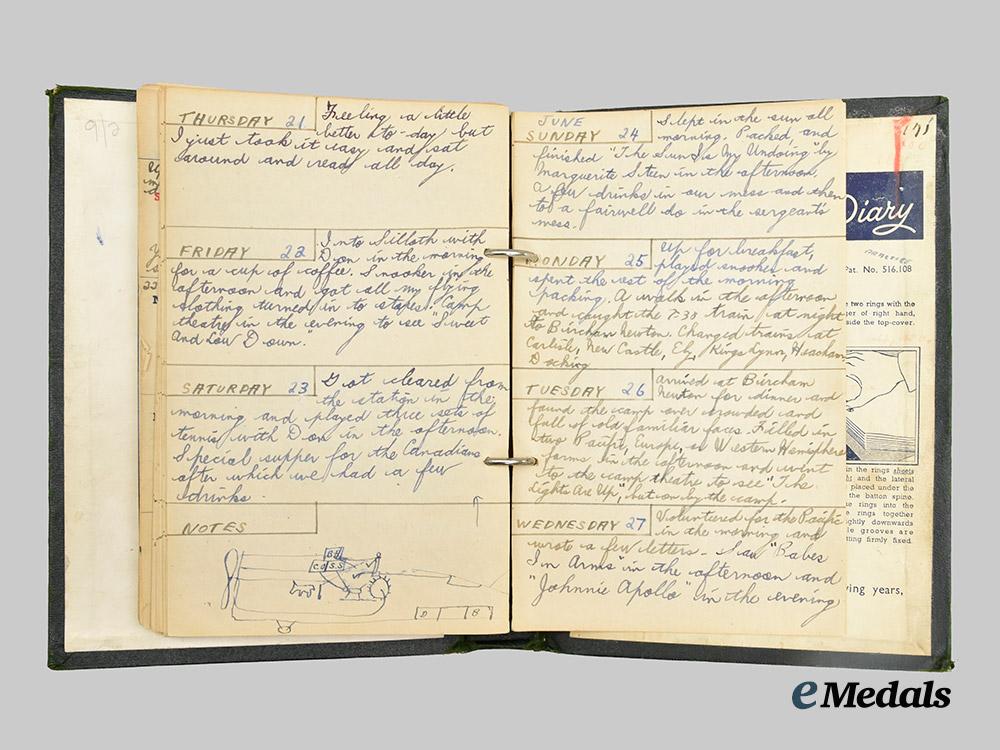 9/2
THURSDAY 21
Feeling a little
better to-day but
I just took it easy and sat
around and read all day.
FRIDAY 22
Into Silloth with
Don in the morning
for a cup of coffee. Snooker in the
afternoon and got all my flying
clothing turned in to stores. Camp
theatre in the evening to see "Sweet
and Low Down."
SATURDAY 23
Got cleared from
the station in the
morning and played three sets of
tennis with Don in the afternoon.
Special supper for the Canadians
after which we had a few
drinks.
NOTES
B.H
C.O S.S
D B
JUNE
SUNDAY 24
Slept in the sun all
morning. Packed, and
finished "The Sun Is My Undoing" by
Marguerite Steen in the afternoon.
A few drinks in our mess and then
to a fairwell do in the sergeant's
mess.
MONDAY 25
Up for breakfast,
played snooker and
spent the rest of the morning
packing. A walk in the afternoon
and caught the 7:38 train at night
to Bircham Newton. Changed trains at
Carlisle, New Castle, Ely, Kings Lynn, Heacham
Docking
TUESDAY 26
Arrived at Bircham
Newton for dinner and
found the camp over crowded and
full of old familiar faces. Filled in
two Pacific, Europe, or Western Hemisphere
forms in the afternoon and went
to the camp theatre to see "The
Lights Are Up", but on by the camp.
WEDNESDAY 27
Volunteered for the Pacific
in the morning and
wrote a few letters - Saw "Babes
In Arms" in the afternoon and
"Johnnie Apollo" in the evening
Diary
Pat. No. 516.108
two rings with the
ger of right hand,
side the top-cover.
in the rings sheets
and the lateral
placed under the
the batton spine.
e rings into the
rings together
ghtly downwards
e grooves are
tting firmly fixed.
ving years,
eMedals